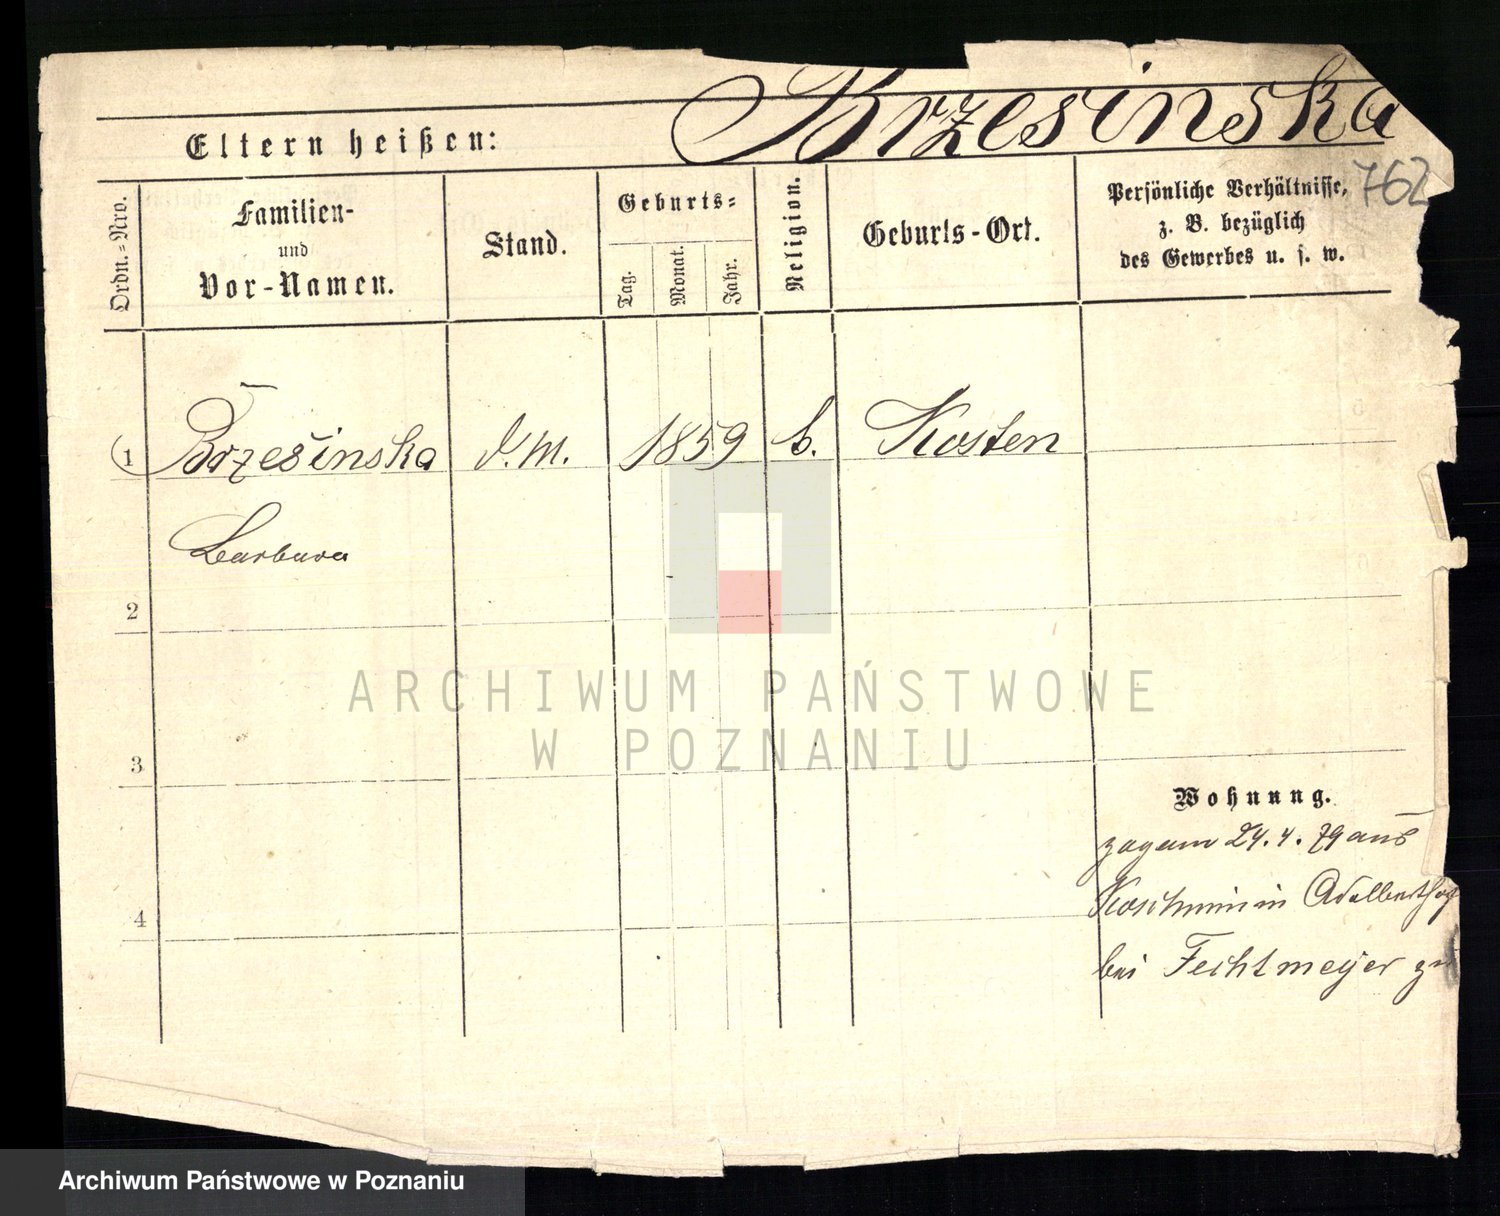 Brzesinska
Eltern heißen:
762
Ordn.-Nro.
Familien-
und
Vor-Namen.
Stand.
Geburts-
Tag.
Monat.
Jahr.
Religion.
Geburts-Ort.
Persönliche Verhältnisse,
z. B. bezüglich
des Gewerbes u. s. w.
1 Brzesinska D.M. 1859 k. Kosten
Barbara
2
3
4
Wohnung.
zog am 24.4.79 aus
Koschmin in
bei Fechtmeyer zu
ARCHIWUM PAŃSTWOWE
W POZNANIU
Archiwum Państwowe w Poznaniu